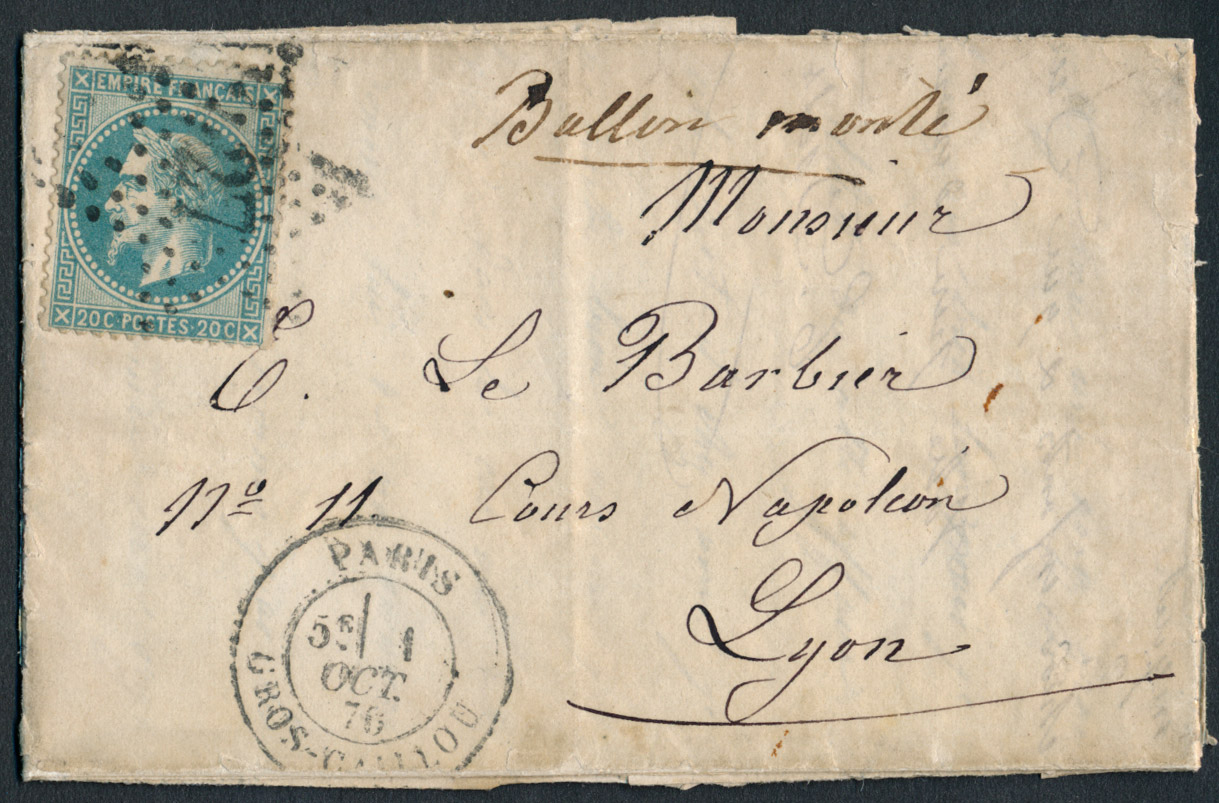 EMPIRE FRANÇAIS
20C·POSTES·20C
Ballon monté
Monsieur
E. Le Barbier
Nº 11. Cours Napoléon
Lyon
PARIS
5E 1
OCT.
70
GROS-CAILLOU